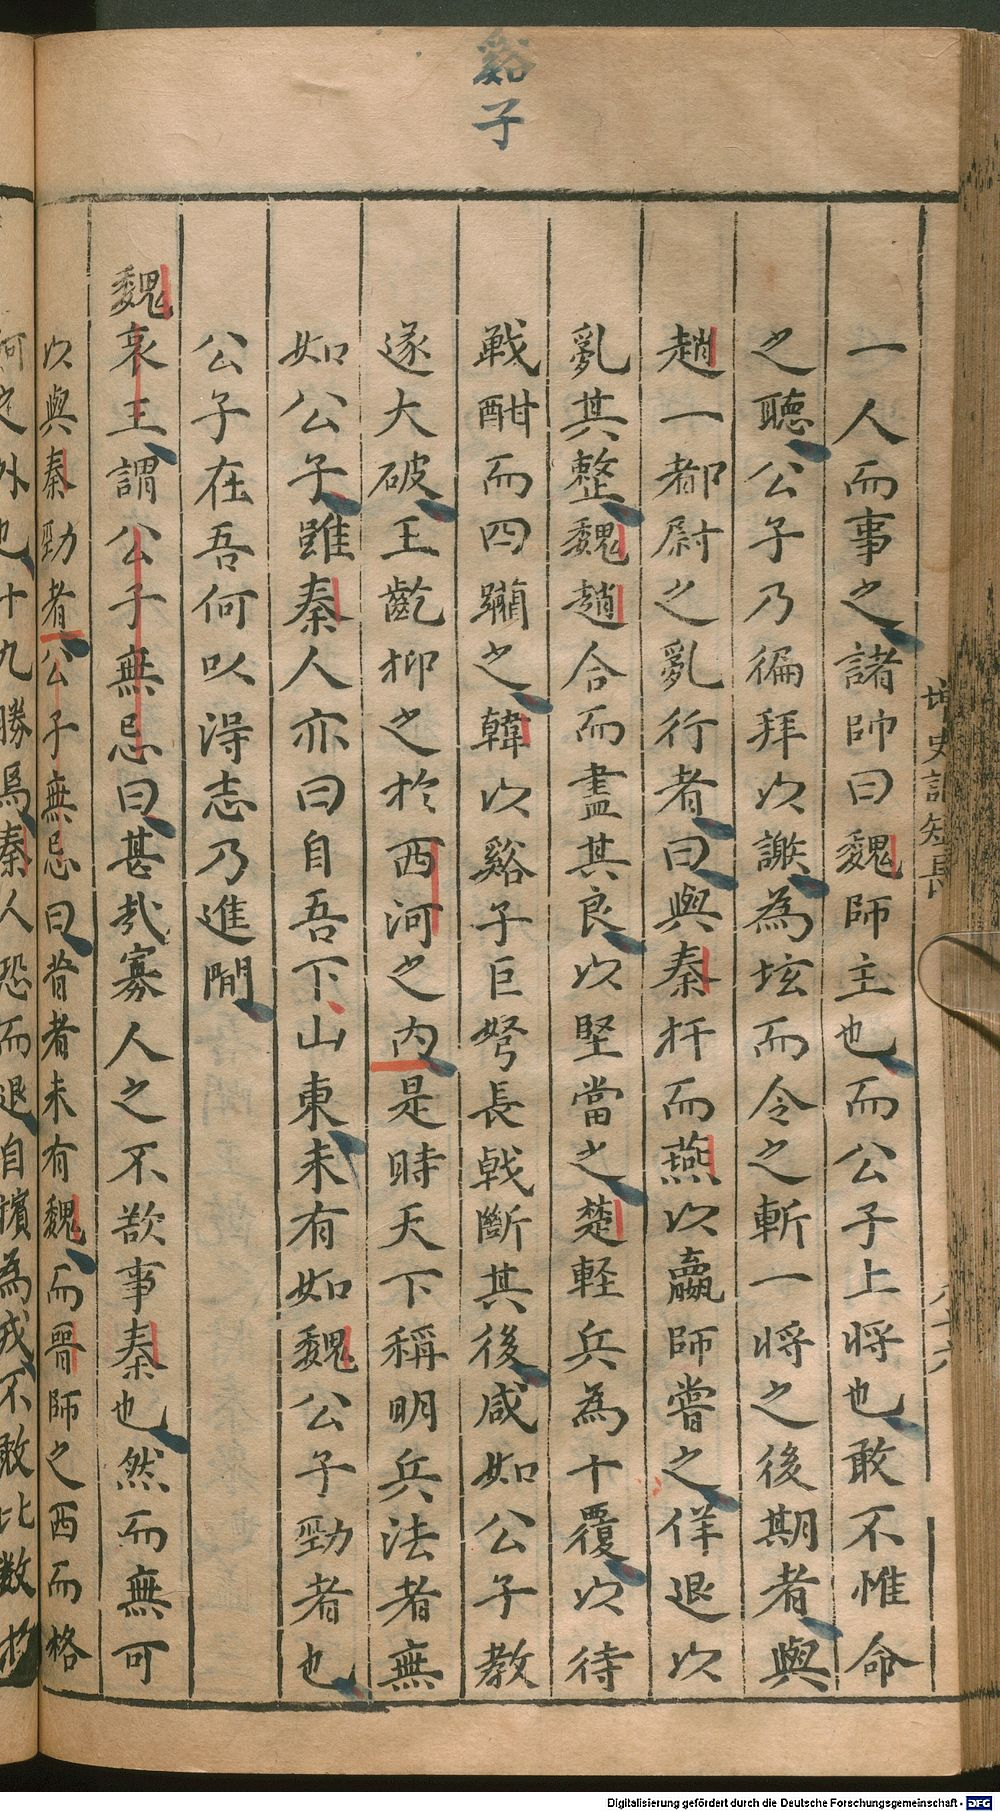 谿子
一人而事之諸帥曰魏師主也而公子上将也敢不惟命
之聴公子乃徧拜以謝為坛而令之斬一将之後期者與
趙一都尉之亂行者曰與秦扞而燕以嬴師嘗之佯退以
亂其整魏趙合而盡其良以堅當之楚軽兵為十覆以待
戦酣而四躪之韓以谿子巨弩長戟斷其後咸如公子教
遂大破王齕抑之於西河之内是時天下稱明兵法者無
如公子雖秦人亦曰自吾下山東未有如魏公子勁者也
公子在吾何以得志乃進間
魏哀王謂公子無忌曰甚哉寡人之不欲事秦也然而無可
以與秦勁者公子無忌曰昔者未有魏而晉師之西而格
河之外也十九勝焉秦人恐而退自擯為戎不敢比数於
史記短長
八十六
Digitalisierung gefördert durch die Deutsche Forschungsgemeinschaft - DFG